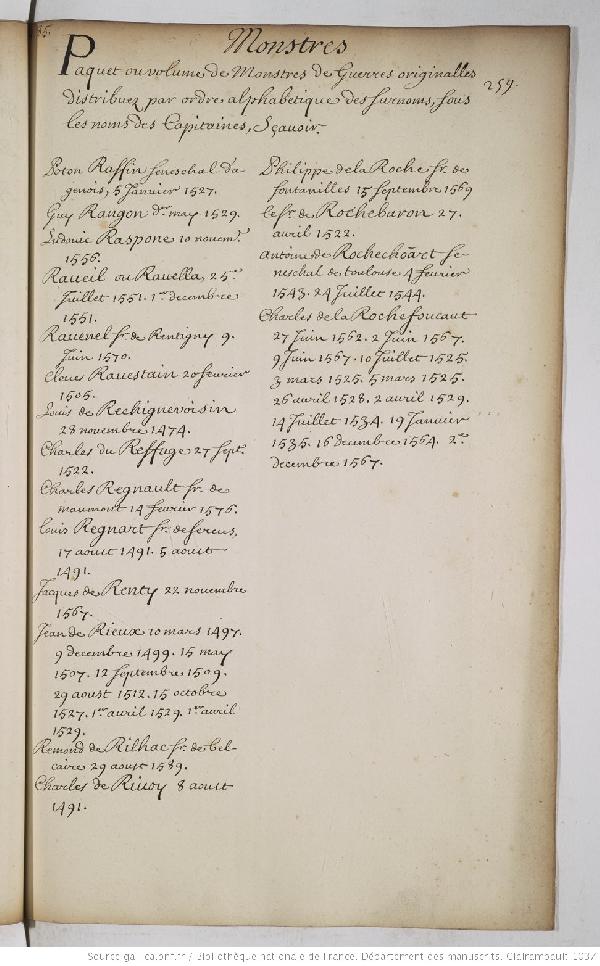 Monstres
Paquet ou volume de Monstres de Guerres originalles
259.
distribuez par ordre alphabetique des surnoms, sous
les noms des Capitaines, Sçavoir,
Poton Raffin seneschal d'a-
genois, 5 Janvier 1527.
Guy Rangon d.er may 1529.
Ludovic Raspone 10 novem.e
1556.
Raveil ou Ravella, 25.e
Juillet 1551. 1.er decembre
1551.
Ravenel sr. de Rentigny 9.
Juin 1570.
Cloues Ravestain 20 fevrier
1505.
Louis de Rechignevoisin
28 novembre 1474.
Charles du Reffuge 27 sept.
1522.
Charles Regnault sr. de
maumont 14 fevrier 1576.
Louis Regnart sr. de sereus,
17 aoust 1491. 5 aoust
1491.
Jacques de Renty 22 novembre
1567.
Jean de Rieux 10 mars 1497.
9 decembre 1499. 15 may
1507. 12 septembre 1509.
29 aoust 1512. 15 octobre
1527. 1.er avril 1529. 1.er avril
1529.
Remond de Rilhac sr. de bel-
caire 29 aoust 1589.
Charles de Rivoy 8 aoust
1491.
Philippe de la Roche sr. de
fontanilles 15 septembre 1569
le sr. de Rochebaron 27.
avril 1522.
antoine de Rochechoart se-
neschal de toulouse 4 fevrier
1543. 24 Juillet 1544.
Charles de la Rochefoucaut
27 Juin 1562. 2 Juin 1567.
9 Juin 1567. 10 Juillet 1525.
3 mars 1525. 5 mars 1525.
26 avril 1528. 2 avril 1529.
14 Juillet 1534. 19 Janvier
1535. 16 decembre 1564. 2.e
decembre 1567.
Source gallica.bnf.fr / Bibliothèque nationale de France. Département des manuscrits. Clairambault 1037